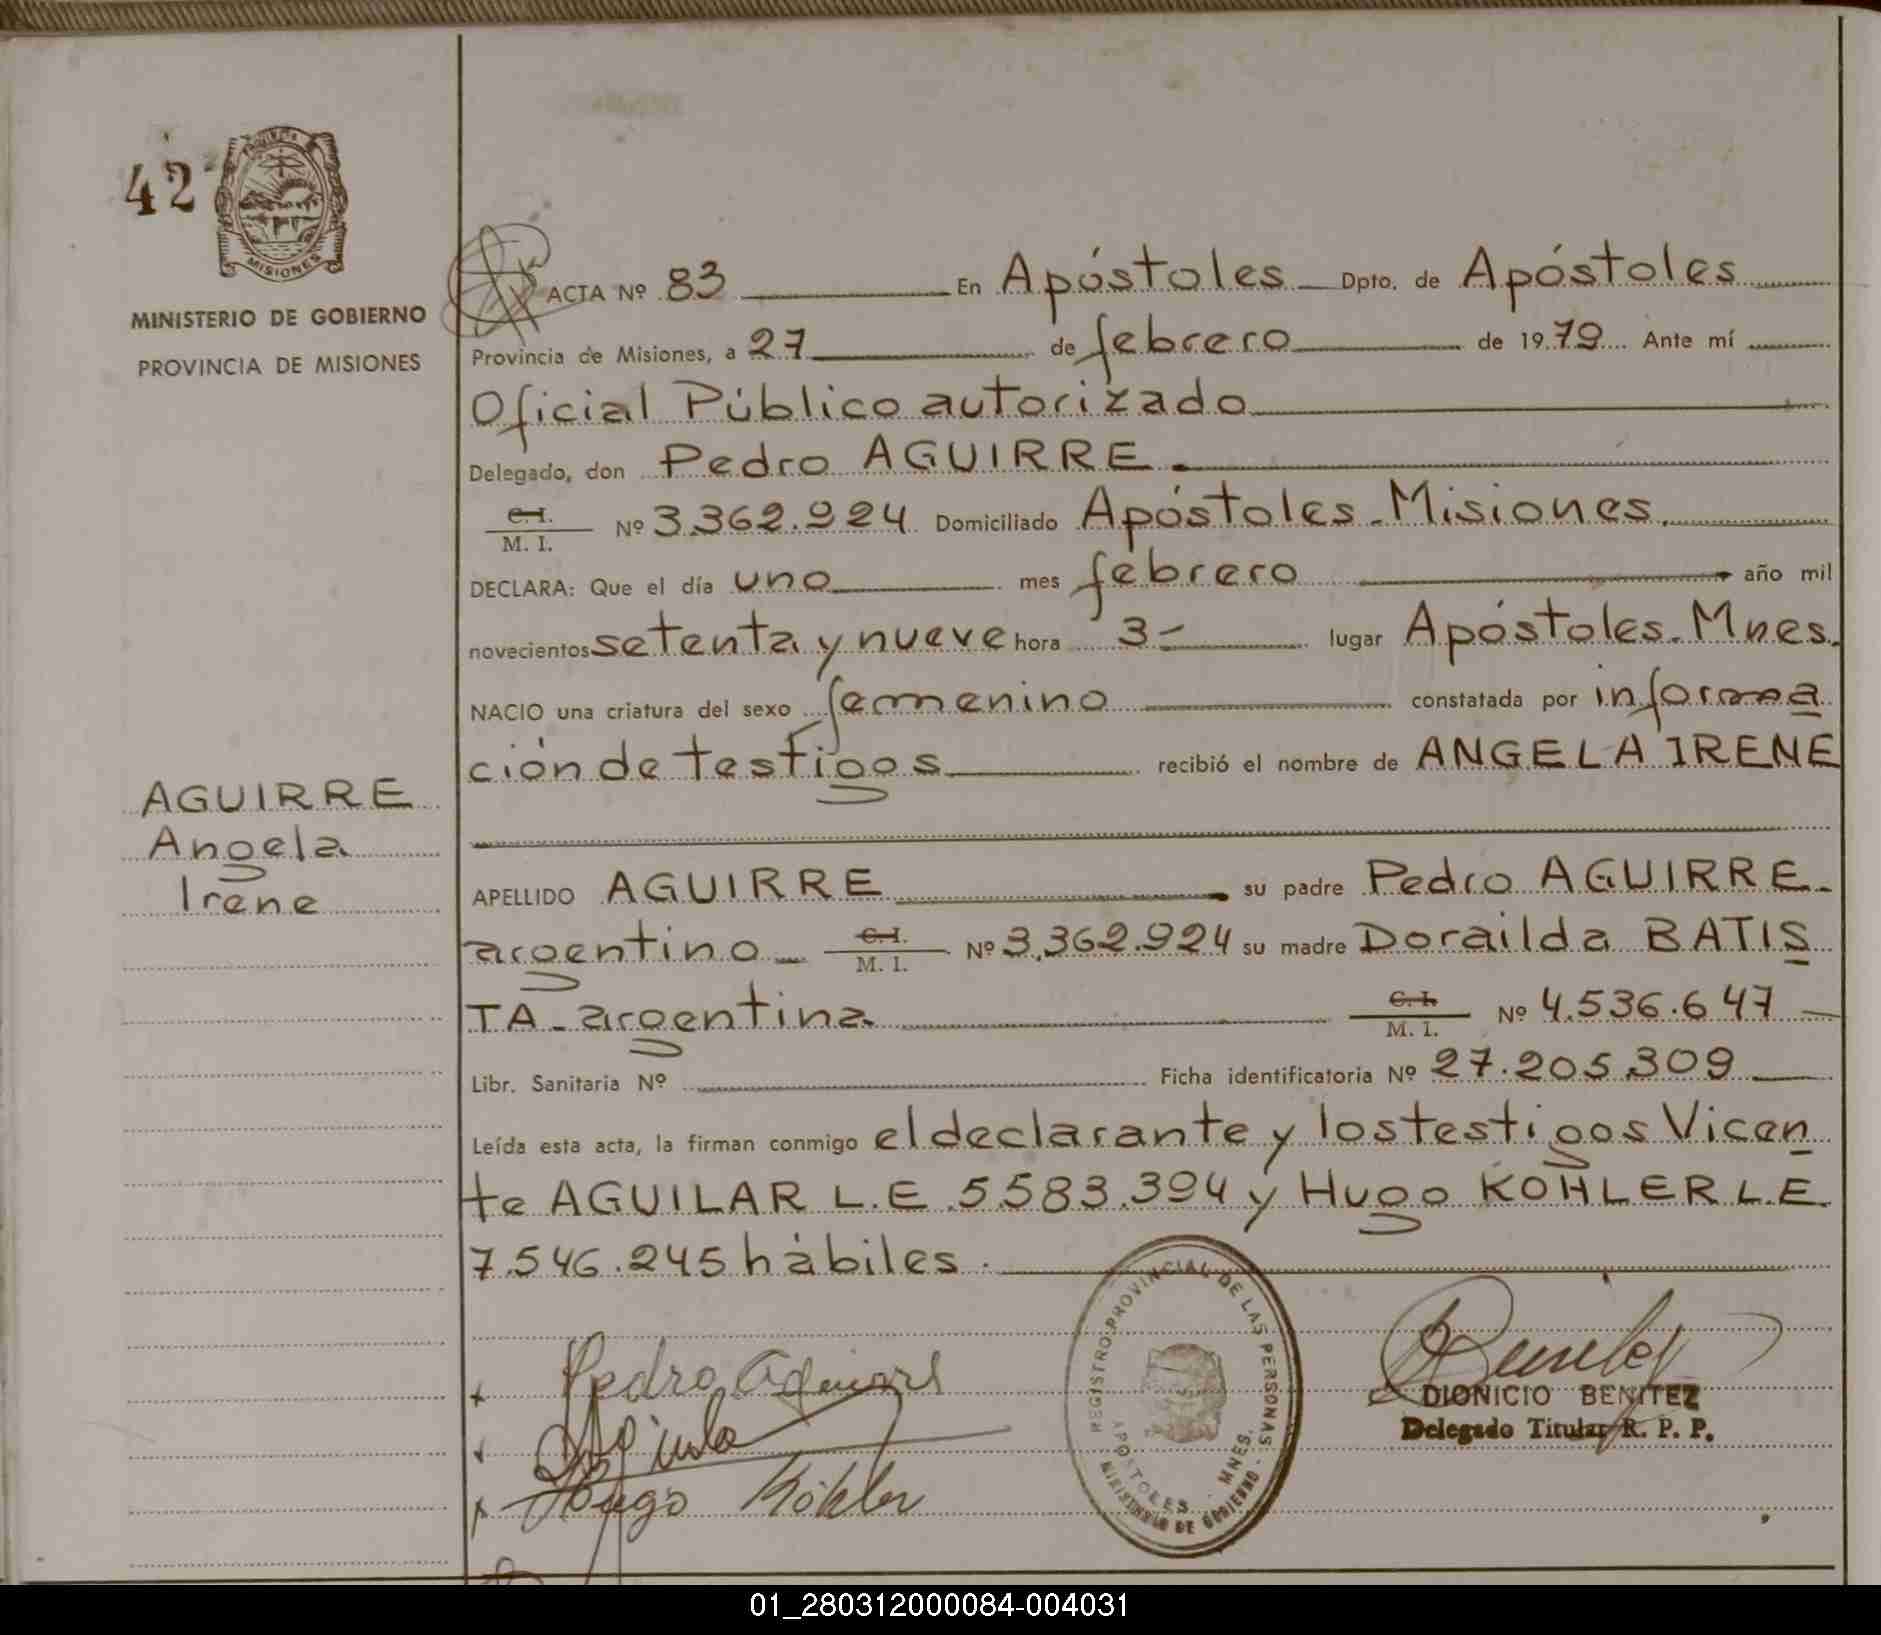 42
PROVINCIA
MISIONES
MINISTERIO DE GOBIERNO
PROVINCIA DE MISIONES
ACTA Nº 83 En Apóstoles Dpto. de Apóstoles
Provincia de Misiones, a 27 de febrero de 1979 Ante mí
Oficial Público autorizado
Delegado, don Pedro AGUIRRE.
C. I.
M. I. Nº 3.362.924 Domiciliado Apóstoles - Misiones.
DECLARA: Que el día uno mes febrero año mil
novecientos setenta y nueve hora 3- lugar Apóstoles - Mnes.
NACIO una criatura del sexo femenino constatada por informa
ción de testigos recibió el nombre de ANGELA IRENE
AGUIRRE
Angela
Irene
APELLIDO AGUIRRE su padre Pedro AGUIRRE -
argentino - C. I. M. I. Nº 3.362.924 su madre Dorailda BATIS
TA - argentina C. I. M. I. Nº 4.536.647
Libr. Sanitaria Nº Ficha identificatoria Nº 27.205.309
Leída esta acta, la firman conmigo el declarante y los testigos Vicen
te AGUILAR L.E 5.583.394 y Hugo KOHLER L.E
7.546.245 hábiles.
Pedro Aguirre
Hugo Köhler
REGISTRO PROVINCIAL DE LAS PERSONAS
APOSTOLES - MNES.
MINISTERIO DE GOBIERNO
DIONICIO BENITEZ
Delegado Titular R. P. P.
01_280312000084-004031